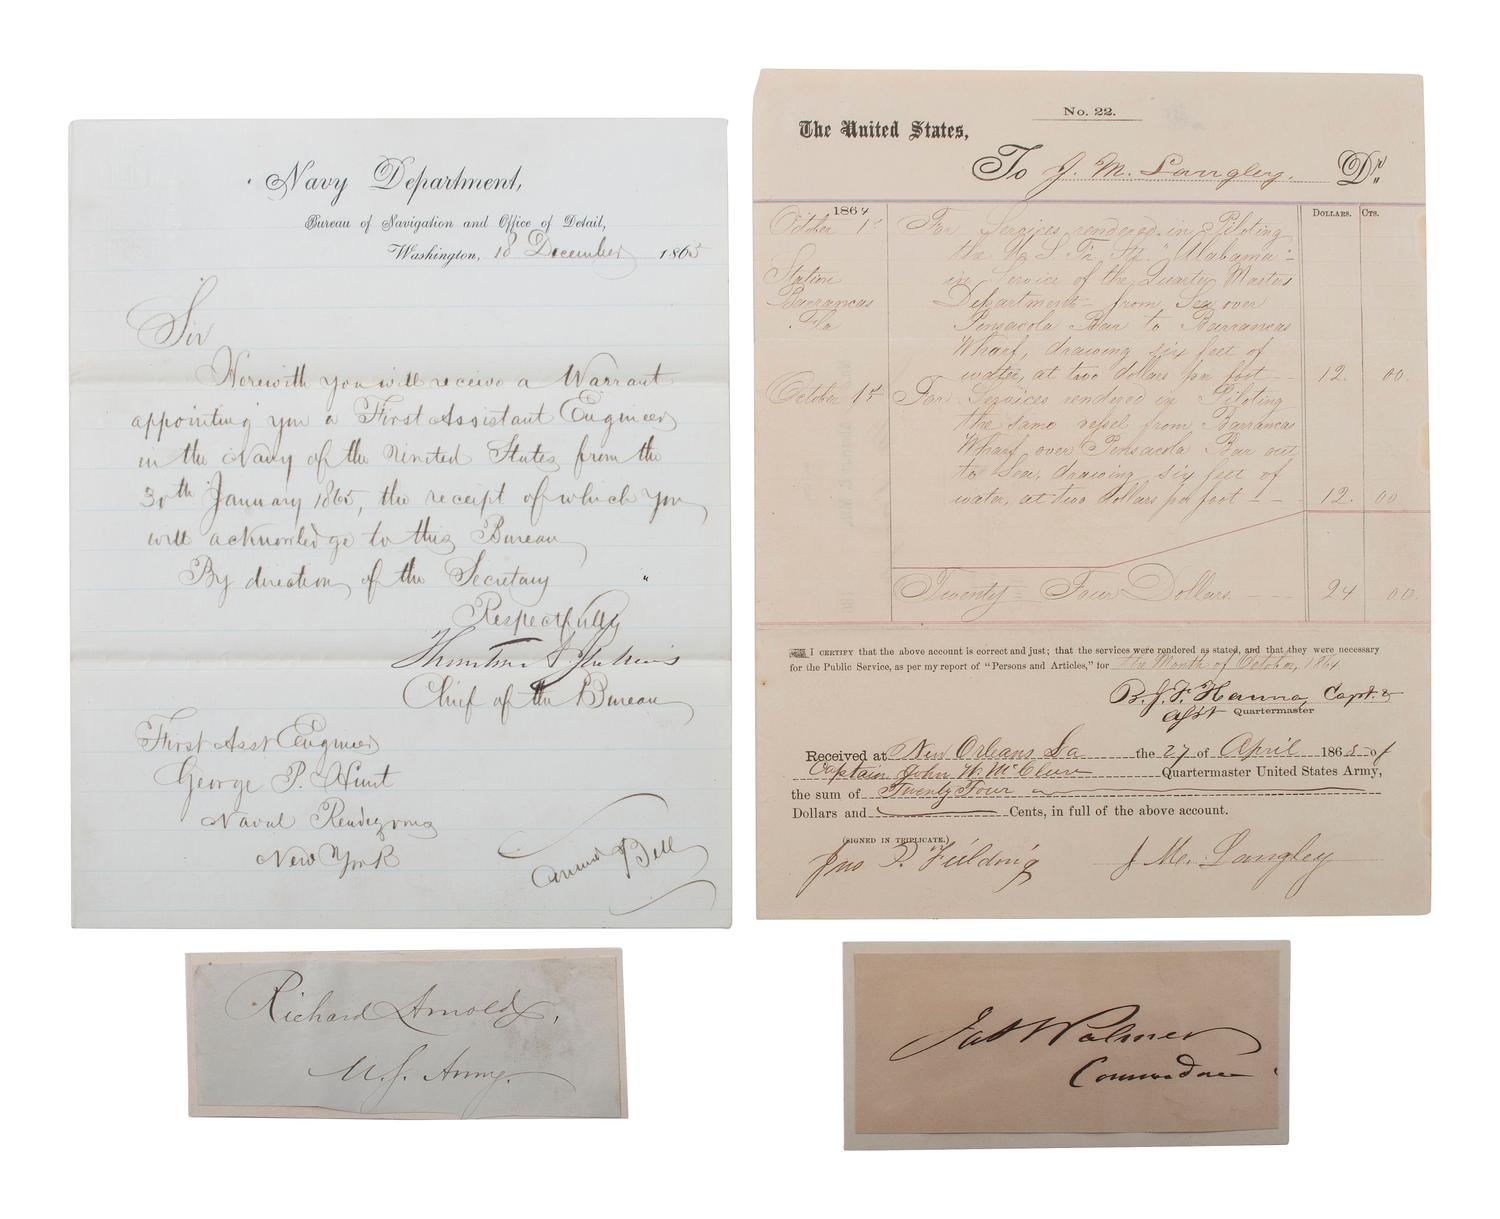 Navy Department,
Bureau of Navigation and Office of Detail,
Washington, 18 December 1865
Sir
Herewith you will receive a Warrant
appointing you a First Assistant Engineer
in the Navy of the United States from the
30th January 1865, the receipt of which you
will acknowledge to this Bureau
By direction of the Secretary
Respectfully
Thornton A. Jenkins
Chief of the Bureau
First Asst Engineer
George P. Hunt
Naval Rendezvous
New York
Bell
No. 22.
The United States,
To J. M. Langley. Dr.,
1864 DOLLARS. CTS.
October 1st For Services rendered in Piloting
the U. S. Tr. Str. "Alabama"
Station in Service of the Quarter Masters
Barrancas Department - from Sea over
Fla Pensacola Bar to Barrancas
Wharf, drawing six feet of
water, at two dollars per foot - - 12. 00.
October 1st For Services rendered in Piloting
the same vessel from Barrancas
Wharf over Pensacola Bar out
to Sea, drawing six feet of
water, at two dollars per foot - - 12. 00
Twenty = Four Dollars - - - 24 00.
I CERTIFY that the above account is correct and just; that the services were rendered as stated, and that they were necessary
for the Public Service, as per my report of "Persons and Articles," for the Month of October, 1864
B. J. F. Hanna, Capt. &
Asst Quartermaster
Received at New Orleans La the 27 of April 1865 of
Captain John W. McClure Quartermaster United States Army,
the sum of Twenty Four
Dollars and Cents, in full of the above account.
(SIGNED IN TRIPLICATE.)
Jno P. Fielding J M. Langley
Richard Arnold,
U. S. Army.
Jas S Palmer
Commodore